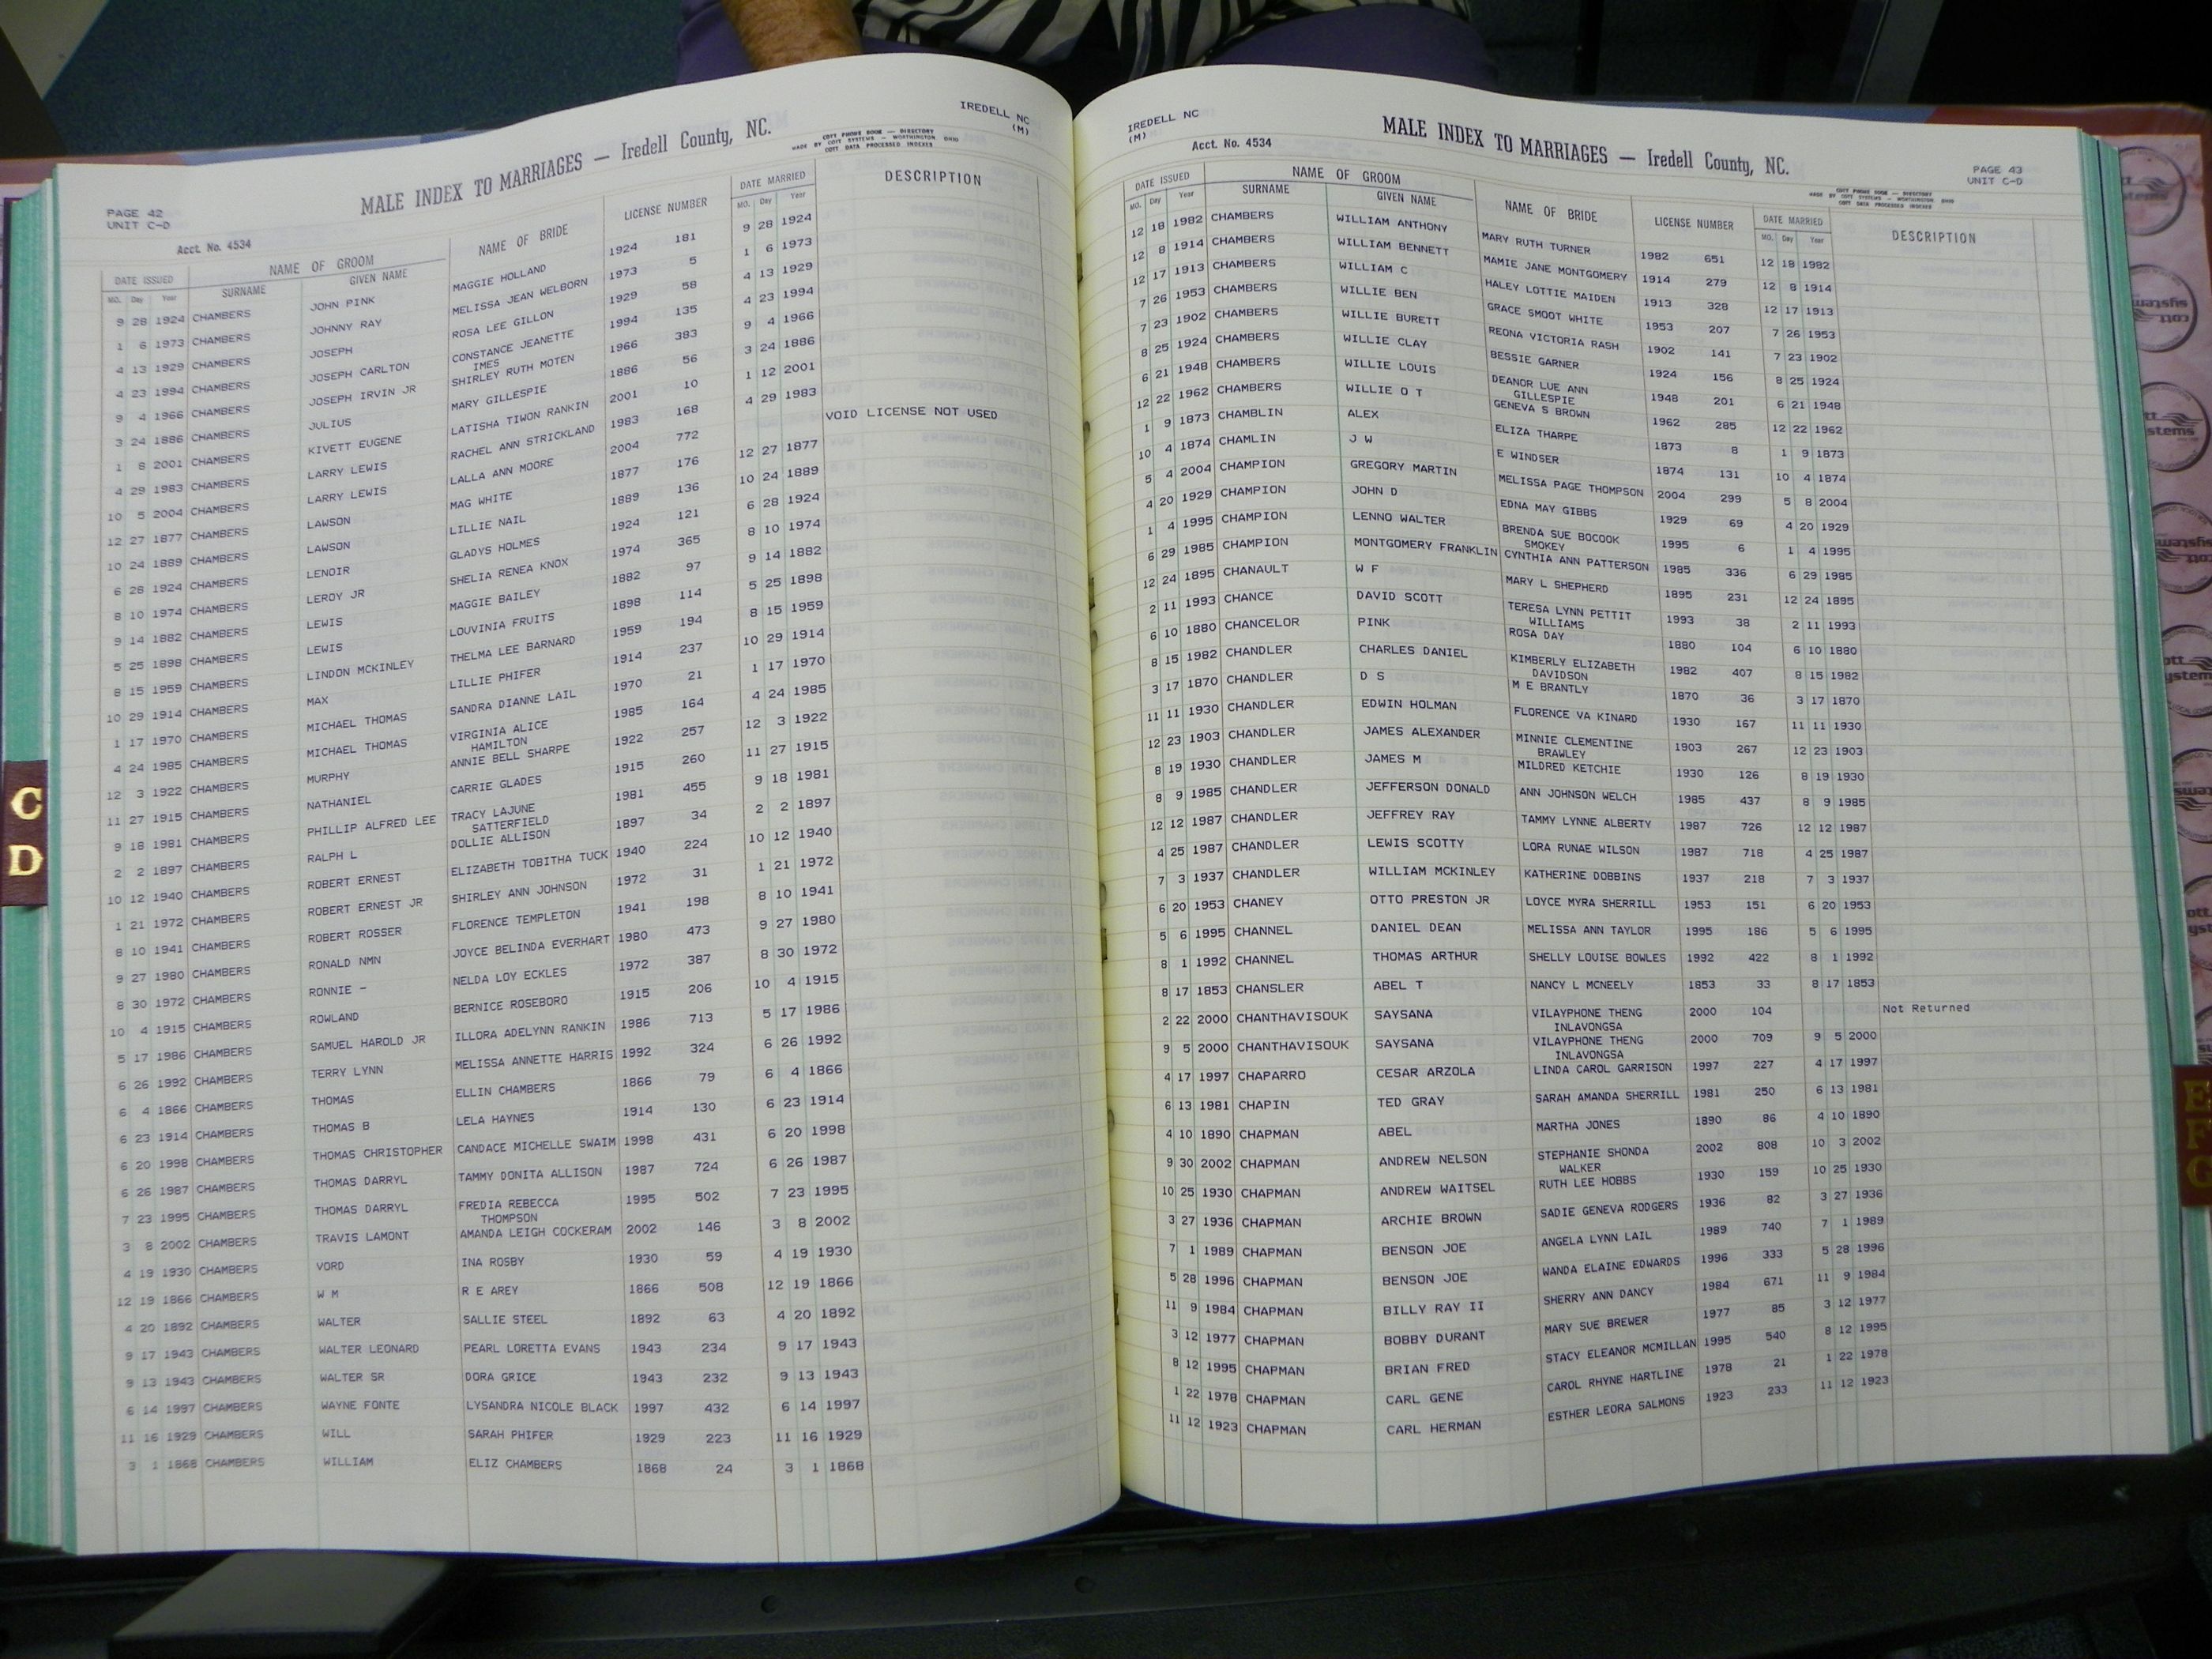 IREDELL NC
(M)
MALE INDEX TO MARRIAGES — Iredell County, NC.
COTT PHONE BOOK — DIRECTORY
MADE BY COTT SYSTEMS — WORTHINGTON OHIO
COTT DATA PROCESSED INDEXES
PAGE 42
UNIT C-D
Acct. No. 4534
DATE ISSUED NAME OF GROOM NAME OF BRIDE LICENSE NUMBER DATE MARRIED DESCRIPTION
MO. Day Year SURNAME GIVEN NAME MO. Day Year
9 28 1924 CHAMBERS JOHN PINK MAGGIE HOLLAND 1924 181 9 28 1924
1 6 1973 CHAMBERS JOHNNY RAY MELISSA JEAN WELBORN 1973 5 1 6 1973
4 13 1929 CHAMBERS JOSEPH ROSA LEE GILLON 1929 58 4 13 1929
4 23 1994 CHAMBERS JOSEPH CARLTON CONSTANCE JEANETTE 1994 135 4 23 1994
IMES
9 4 1966 CHAMBERS JOSEPH IRVIN JR SHIRLEY RUTH MOTEN 1966 383 9 4 1966
3 24 1886 CHAMBERS JULIUS MARY GILLESPIE 1886 56 3 24 1886
1 8 2001 CHAMBERS KIVETT EUGENE LATISHA TIWON RANKIN 2001 10 1 12 2001
4 29 1983 CHAMBERS LARRY LEWIS RACHEL ANN STRICKLAND 1983 168 4 29 1983
10 5 2004 CHAMBERS LARRY LEWIS LALLA ANN MOORE 2004 772 VOID LICENSE NOT USED
12 27 1877 CHAMBERS LAWSON MAG WHITE 1877 176 12 27 1877
10 24 1889 CHAMBERS LAWSON LILLIE NAIL 1889 136 10 24 1889
6 28 1924 CHAMBERS LENOIR GLADYS HOLMES 1924 121 6 28 1924
8 10 1974 CHAMBERS LEROY JR SHELIA RENEA KNOX 1974 365 8 10 1974
9 14 1882 CHAMBERS LEWIS MAGGIE BAILEY 1882 97 9 14 1882
5 25 1898 CHAMBERS LEWIS LOUVINIA FRUITS 1898 114 5 25 1898
8 15 1959 CHAMBERS LINDON MCKINLEY THELMA LEE BARNARD 1959 194 8 15 1959
10 29 1914 CHAMBERS MAX LILLIE PHIFER 1914 237 10 29 1914
1 17 1970 CHAMBERS MICHAEL THOMAS SANDRA DIANNE LAIL 1970 21 1 17 1970
4 24 1985 CHAMBERS MICHAEL THOMAS VIRGINIA ALICE 1985 164 4 24 1985
HAMILTON
12 3 1922 CHAMBERS MURPHY ANNIE BELL SHARPE 1922 257 12 3 1922
11 27 1915 CHAMBERS NATHANIEL CARRIE GLADES 1915 260 11 27 1915
9 18 1981 CHAMBERS PHILLIP ALFRED LEE TRACY LAJUNE 1981 455 9 18 1981
SATTERFIELD
2 2 1897 CHAMBERS RALPH L DOLLIE ALLISON 1897 34 2 2 1897
10 12 1940 CHAMBERS ROBERT ERNEST ELIZABETH TOBITHA TUCK 1940 224 10 12 1940
1 21 1972 CHAMBERS ROBERT ERNEST JR SHIRLEY ANN JOHNSON 1972 31 1 21 1972
8 10 1941 CHAMBERS ROBERT ROSSER FLORENCE TEMPLETON 1941 198 8 10 1941
9 27 1980 CHAMBERS RONALD NMN JOYCE BELINDA EVERHART 1980 473 9 27 1980
8 30 1972 CHAMBERS RONNIE - NELDA LOY ECKLES 1972 387 8 30 1972
10 4 1915 CHAMBERS ROWLAND BERNICE ROSEBORO 1915 206 10 4 1915
5 17 1986 CHAMBERS SAMUEL HAROLD JR ILLORA ADELYNN RANKIN 1986 713 5 17 1986
6 26 1992 CHAMBERS TERRY LYNN MELISSA ANNETTE HARRIS 1992 324 6 26 1992
6 4 1866 CHAMBERS THOMAS ELLIN CHAMBERS 1866 79 6 4 1866
6 23 1914 CHAMBERS THOMAS B LELA HAYNES 1914 130 6 23 1914
6 20 1998 CHAMBERS THOMAS CHRISTOPHER CANDACE MICHELLE SWAIM 1998 431 6 20 1998
6 26 1987 CHAMBERS THOMAS DARRYL TAMMY DONITA ALLISON 1987 724 6 26 1987
7 23 1995 CHAMBERS THOMAS DARRYL FREDIA REBECCA 1995 502 7 23 1995
THOMPSON
3 8 2002 CHAMBERS TRAVIS LAMONT AMANDA LEIGH COCKERAM 2002 146 3 8 2002
4 19 1930 CHAMBERS VORD INA ROSBY 1930 59 4 19 1930
12 19 1866 CHAMBERS W M R E AREY 1866 508 12 19 1866
4 20 1892 CHAMBERS WALTER SALLIE STEEL 1892 63 4 20 1892
9 17 1943 CHAMBERS WALTER LEONARD PEARL LORETTA EVANS 1943 234 9 17 1943
9 13 1943 CHAMBERS WALTER SR DORA GRICE 1943 232 9 13 1943
6 14 1997 CHAMBERS WAYNE FONTE LYSANDRA NICOLE BLACK 1997 432 6 14 1997
11 16 1929 CHAMBERS WILL SARAH PHIFER 1929 223 11 16 1929
3 1 1868 CHAMBERS WILLIAM ELIZ CHAMBERS 1868 24 3 1 1868
C
D
IREDELL NC
(M)
Acct. No. 4534
MALE INDEX TO MARRIAGES — Iredell County, NC.
PAGE 43
UNIT C-D
COTT PHONE BOOK — DIRECTORY
MADE BY COTT SYSTEMS — WORTHINGTON OHIO
COTT DATA PROCESSED INDEXES
DATE ISSUED NAME OF GROOM NAME OF BRIDE LICENSE NUMBER DATE MARRIED DESCRIPTION
MO. Day Year SURNAME GIVEN NAME MO. Day Year
12 18 1982 CHAMBERS WILLIAM ANTHONY MARY RUTH TURNER 1982 651 12 18 1982
12 8 1914 CHAMBERS WILLIAM BENNETT MAMIE JANE MONTGOMERY 1914 279 12 8 1914
12 17 1913 CHAMBERS WILLIAM C HALEY LOTTIE MAIDEN 1913 328 12 17 1913
7 26 1953 CHAMBERS WILLIE BEN GRACE SMOOT WHITE 1953 207 7 26 1953
7 23 1902 CHAMBERS WILLIE BURETT REONA VICTORIA RASH 1902 141 7 23 1902
8 25 1924 CHAMBERS WILLIE CLAY BESSIE GARNER 1924 156 8 25 1924
6 21 1948 CHAMBERS WILLIE LOUIS DEANOR LUE ANN 1948 201 6 21 1948
GILLESPIE
12 22 1962 CHAMBERS WILLIE O T GENEVA S BROWN 1962 285 12 22 1962
1 9 1873 CHAMBLIN ALEX ELIZA THARPE 1873 8 1 9 1873
10 4 1874 CHAMLIN J W E WINDSER 1874 131 10 4 1874
5 4 2004 CHAMPION GREGORY MARTIN MELISSA PAGE THOMPSON 2004 299 5 8 2004
4 20 1929 CHAMPION JOHN D EDNA MAY GIBBS 1929 69 4 20 1929
1 4 1995 CHAMPION LENNO WALTER BRENDA SUE BOCOOK 1995 6 1 4 1995
SMOKEY
6 29 1985 CHAMPION MONTGOMERY FRANKLIN CYNTHIA ANN PATTERSON 1985 336 6 29 1985
12 24 1895 CHANAULT W F MARY L SHEPHERD 1895 231 12 24 1895
2 11 1993 CHANCE DAVID SCOTT TERESA LYNN PETTIT 1993 38 2 11 1993
WILLIAMS
6 10 1880 CHANCELOR PINK ROSA DAY 1880 104 6 10 1880
8 15 1982 CHANDLER CHARLES DANIEL KIMBERLY ELIZABETH 1982 407 8 15 1982
DAVIDSON
3 17 1870 CHANDLER D S M E BRANTLY 1870 36 3 17 1870
11 11 1930 CHANDLER EDWIN HOLMAN FLORENCE VA KINARD 1930 167 11 11 1930
12 23 1903 CHANDLER JAMES ALEXANDER MINNIE CLEMENTINE 1903 267 12 23 1903
BRAWLEY
8 19 1930 CHANDLER JAMES M MILDRED KETCHIE 1930 126 8 19 1930
8 9 1985 CHANDLER JEFFERSON DONALD ANN JOHNSON WELCH 1985 437 8 9 1985
12 12 1987 CHANDLER JEFFREY RAY TAMMY LYNNE ALBERTY 1987 726 12 12 1987
4 25 1987 CHANDLER LEWIS SCOTTY LORA RUNAE WILSON 1987 718 4 25 1987
7 3 1937 CHANDLER WILLIAM MCKINLEY KATHERINE DOBBINS 1937 218 7 3 1937
6 20 1953 CHANEY OTTO PRESTON JR LOYCE MYRA SHERRILL 1953 151 6 20 1953
5 6 1995 CHANNEL DANIEL DEAN MELISSA ANN TAYLOR 1995 186 5 6 1995
8 1 1992 CHANNEL THOMAS ARTHUR SHELLY LOUISE BOWLES 1992 422 8 1 1992
8 17 1853 CHANSLER ABEL T NANCY L MCNEELY 1853 33 8 17 1853
2 22 2000 CHANTHAVISOUK SAYSANA VILAYPHONE THENG 2000 104 Not Returned
INLAVONGSA
9 5 2000 CHANTHAVISOUK SAYSANA VILAYPHONE THENG 2000 709 9 5 2000
INLAVONGSA
4 17 1997 CHAPARRO CESAR ARZOLA LINDA CAROL GARRISON 1997 227 4 17 1997
6 13 1981 CHAPIN TED GRAY SARAH AMANDA SHERRILL 1981 250 6 13 1981
4 10 1890 CHAPMAN ABEL MARTHA JONES 1890 86 4 10 1890
9 30 2002 CHAPMAN ANDREW NELSON STEPHANIE SHONDA 2002 808 10 3 2002
WALKER
10 25 1930 CHAPMAN ANDREW WAITSEL RUTH LEE HOBBS 1930 159 10 25 1930
3 27 1936 CHAPMAN ARCHIE BROWN SADIE GENEVA RODGERS 1936 82 3 27 1936
7 1 1989 CHAPMAN BENSON JOE ANGELA LYNN LAIL 1989 740 7 1 1989
5 28 1996 CHAPMAN BENSON JOE WANDA ELAINE EDWARDS 1996 333 5 28 1996
11 9 1984 CHAPMAN BILLY RAY II SHERRY ANN DANCY 1984 671 11 9 1984
3 12 1977 CHAPMAN BOBBY DURANT MARY SUE BREWER 1977 85 3 12 1977
8 12 1995 CHAPMAN BRIAN FRED STACY ELEANOR MCMILLAN 1995 540 8 12 1995
1 22 1978 CHAPMAN CARL GENE CAROL RHYNE HARTLINE 1978 21 1 22 1978
11 12 1923 CHAPMAN CARL HERMAN ESTHER LEORA SALMONS 1923 233 11 12 1923
E
F
G